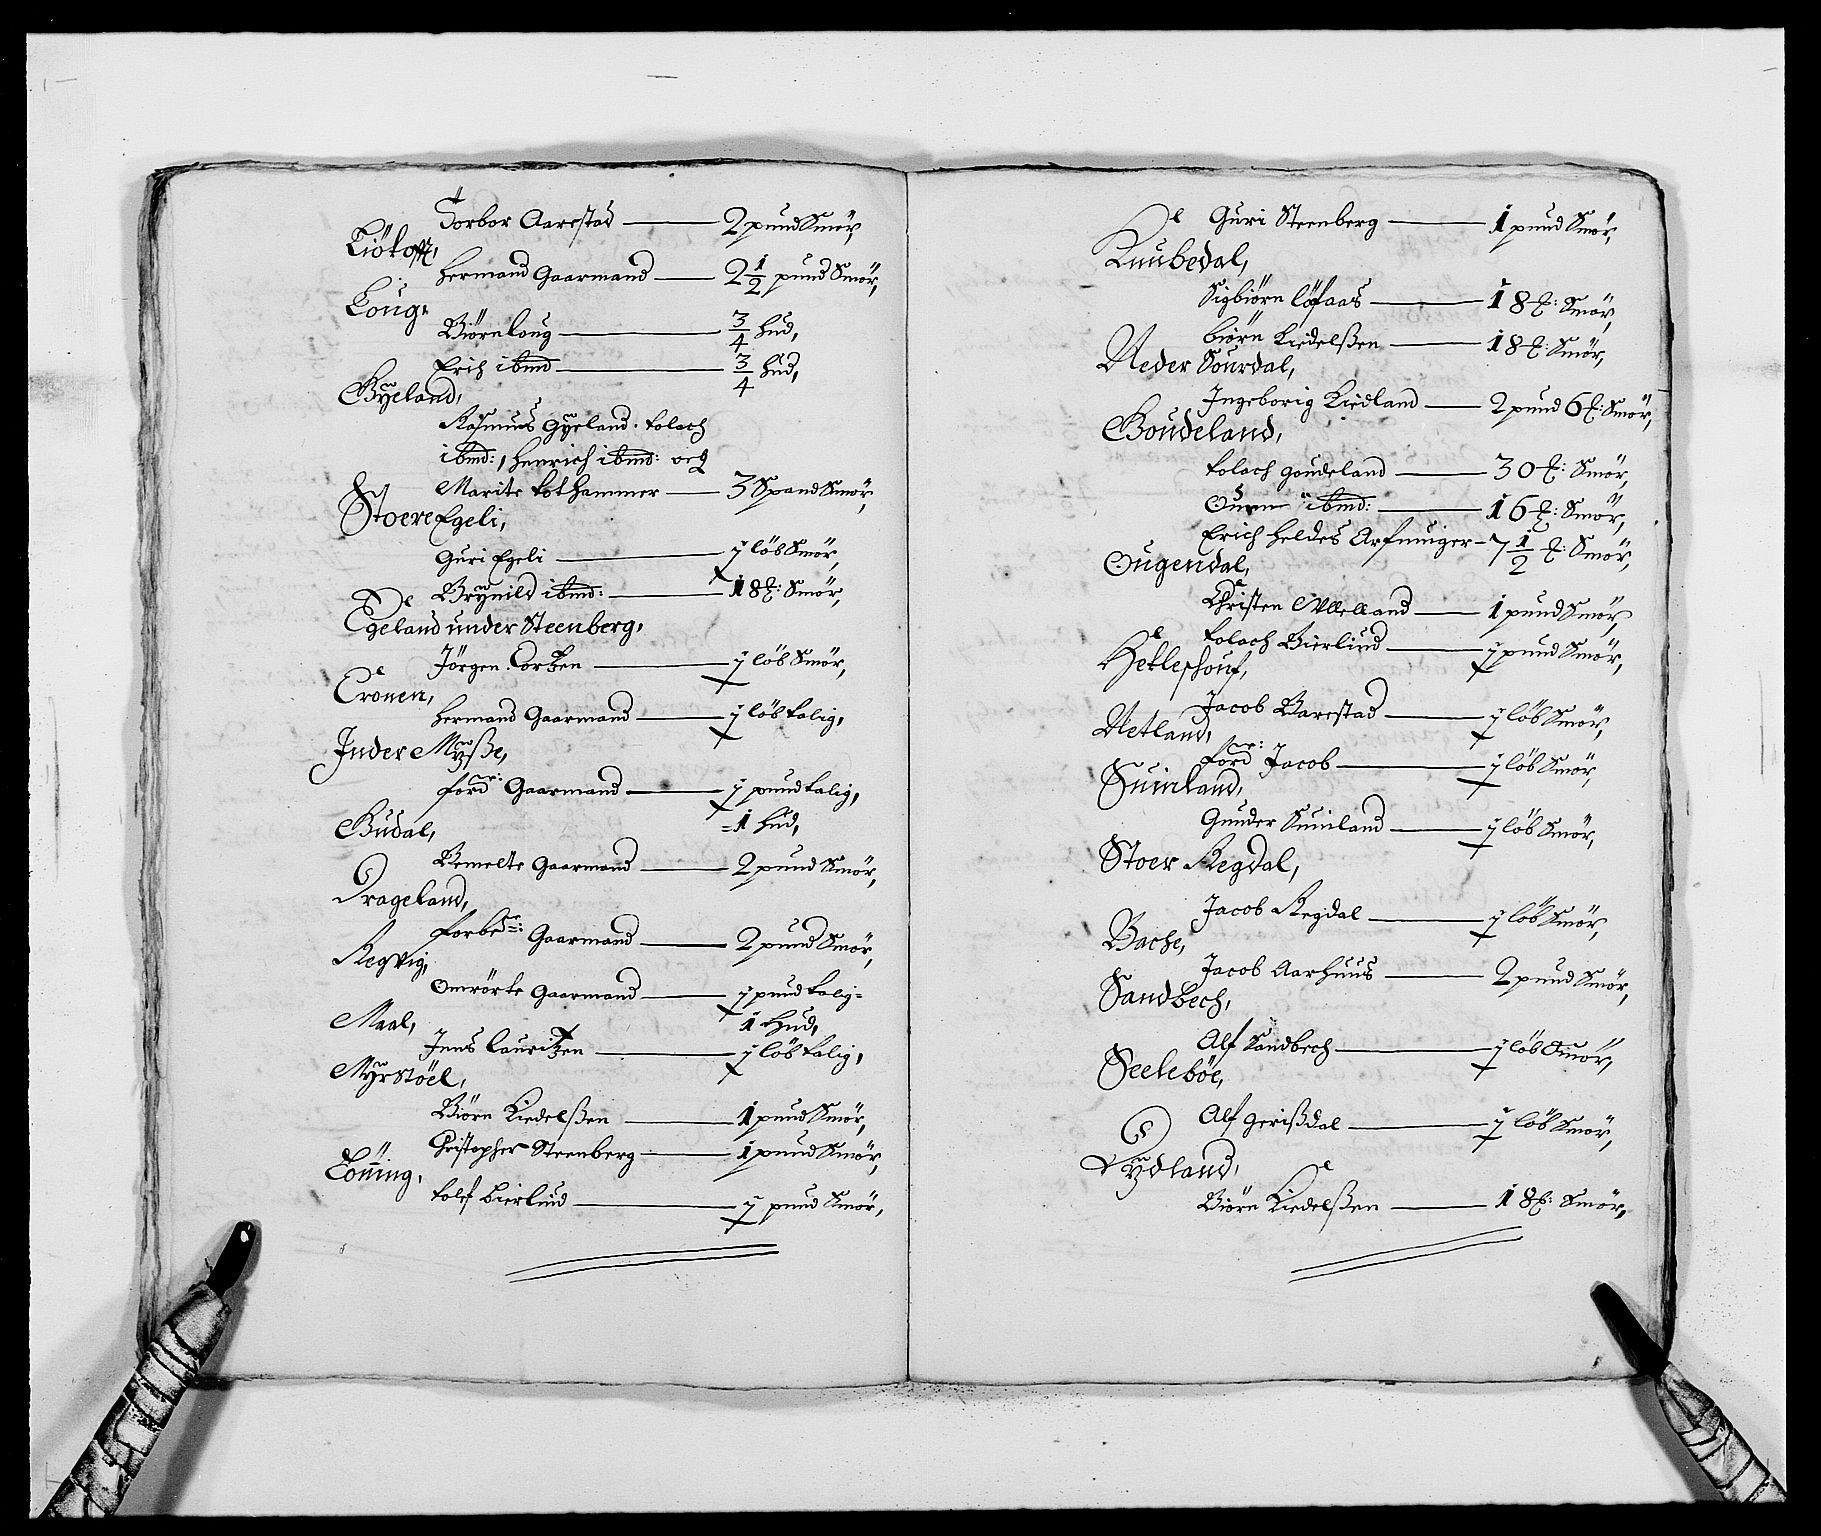 Torbor Aarestad — 2 pund Smör,
Hermand Gaarmand — 2 1/2 pund Smör,
Loug,
Biörn loug — 3/4 hud,
Erich ibmd — 3/4 hud,
Gÿeland,
Rasmus Gÿeland. tolach
ibmd:, Henrich ibmd: og
Marite tothammer — 3 Spand Smör,
Stoere Egeli,
Guri Egeli — j löb Smör,
Brÿnild ibmd: — 18 ℔: Smör,
Egeland under Steenberg,
Jörgen — j löb Smör,
Tronen,
Hermand Gaarmand — j löb talig,
Inder Mÿße,
ford: Gaarmand — j pund talig,
= 1 hud,
Gudal,
Bemelte Gaarmand — 2 pund Smör,
Drageland,
forbe: Gaarmand — 2 pund Smör,
Regvig,
Omrörte Gaarmand — j pund talig =
1 Hud,
Maal,
Jens lauritzen — j löb talig,
Mÿrstöel,
Biörn Kiedelßen — 1 pund Smör,
Christopher Steenberg — 1 pund Smör,
Tönning,
tolf bierlind — j pund Smör,
Guri Steenberg — 1 pund Smör,
Knubedal,
Sigbiörn löfaas — 18 ℔: Smör,
biörn Kiedelßen — 18 ℔: Smör,
Neder Sourdal,
Ingeborig Kiedland — 2 pund 6 ℔: Smör,
Goudeland,
tolach goudeland — 30 ℔: Smör,
Ouen ibmd: — 16 ℔: Smör,
Erich heldes Arfuinger — 7 1/2 ℔: Smör,
Ougendal,
Christen — 1 pund Smör,
tolach Bierlind — j pund Smör,
Jacob Barestad — j löb Smör,
Netland,
ford: Jacob — j löb Smör,
Suinland,
Gunder Suinland — j löb Smör,
Stoer Regdal,
Jacob Regdal — j löb Smör,
Bache,
Jacob Aarhuus — 2 pund Smör,
Sandbech,
Alf Sandbech — j löb Smör,
Seeleböe,
Alf gerißdal — j löb Smör,
Biörn Kiedelßen — 18 ℔: Smör,